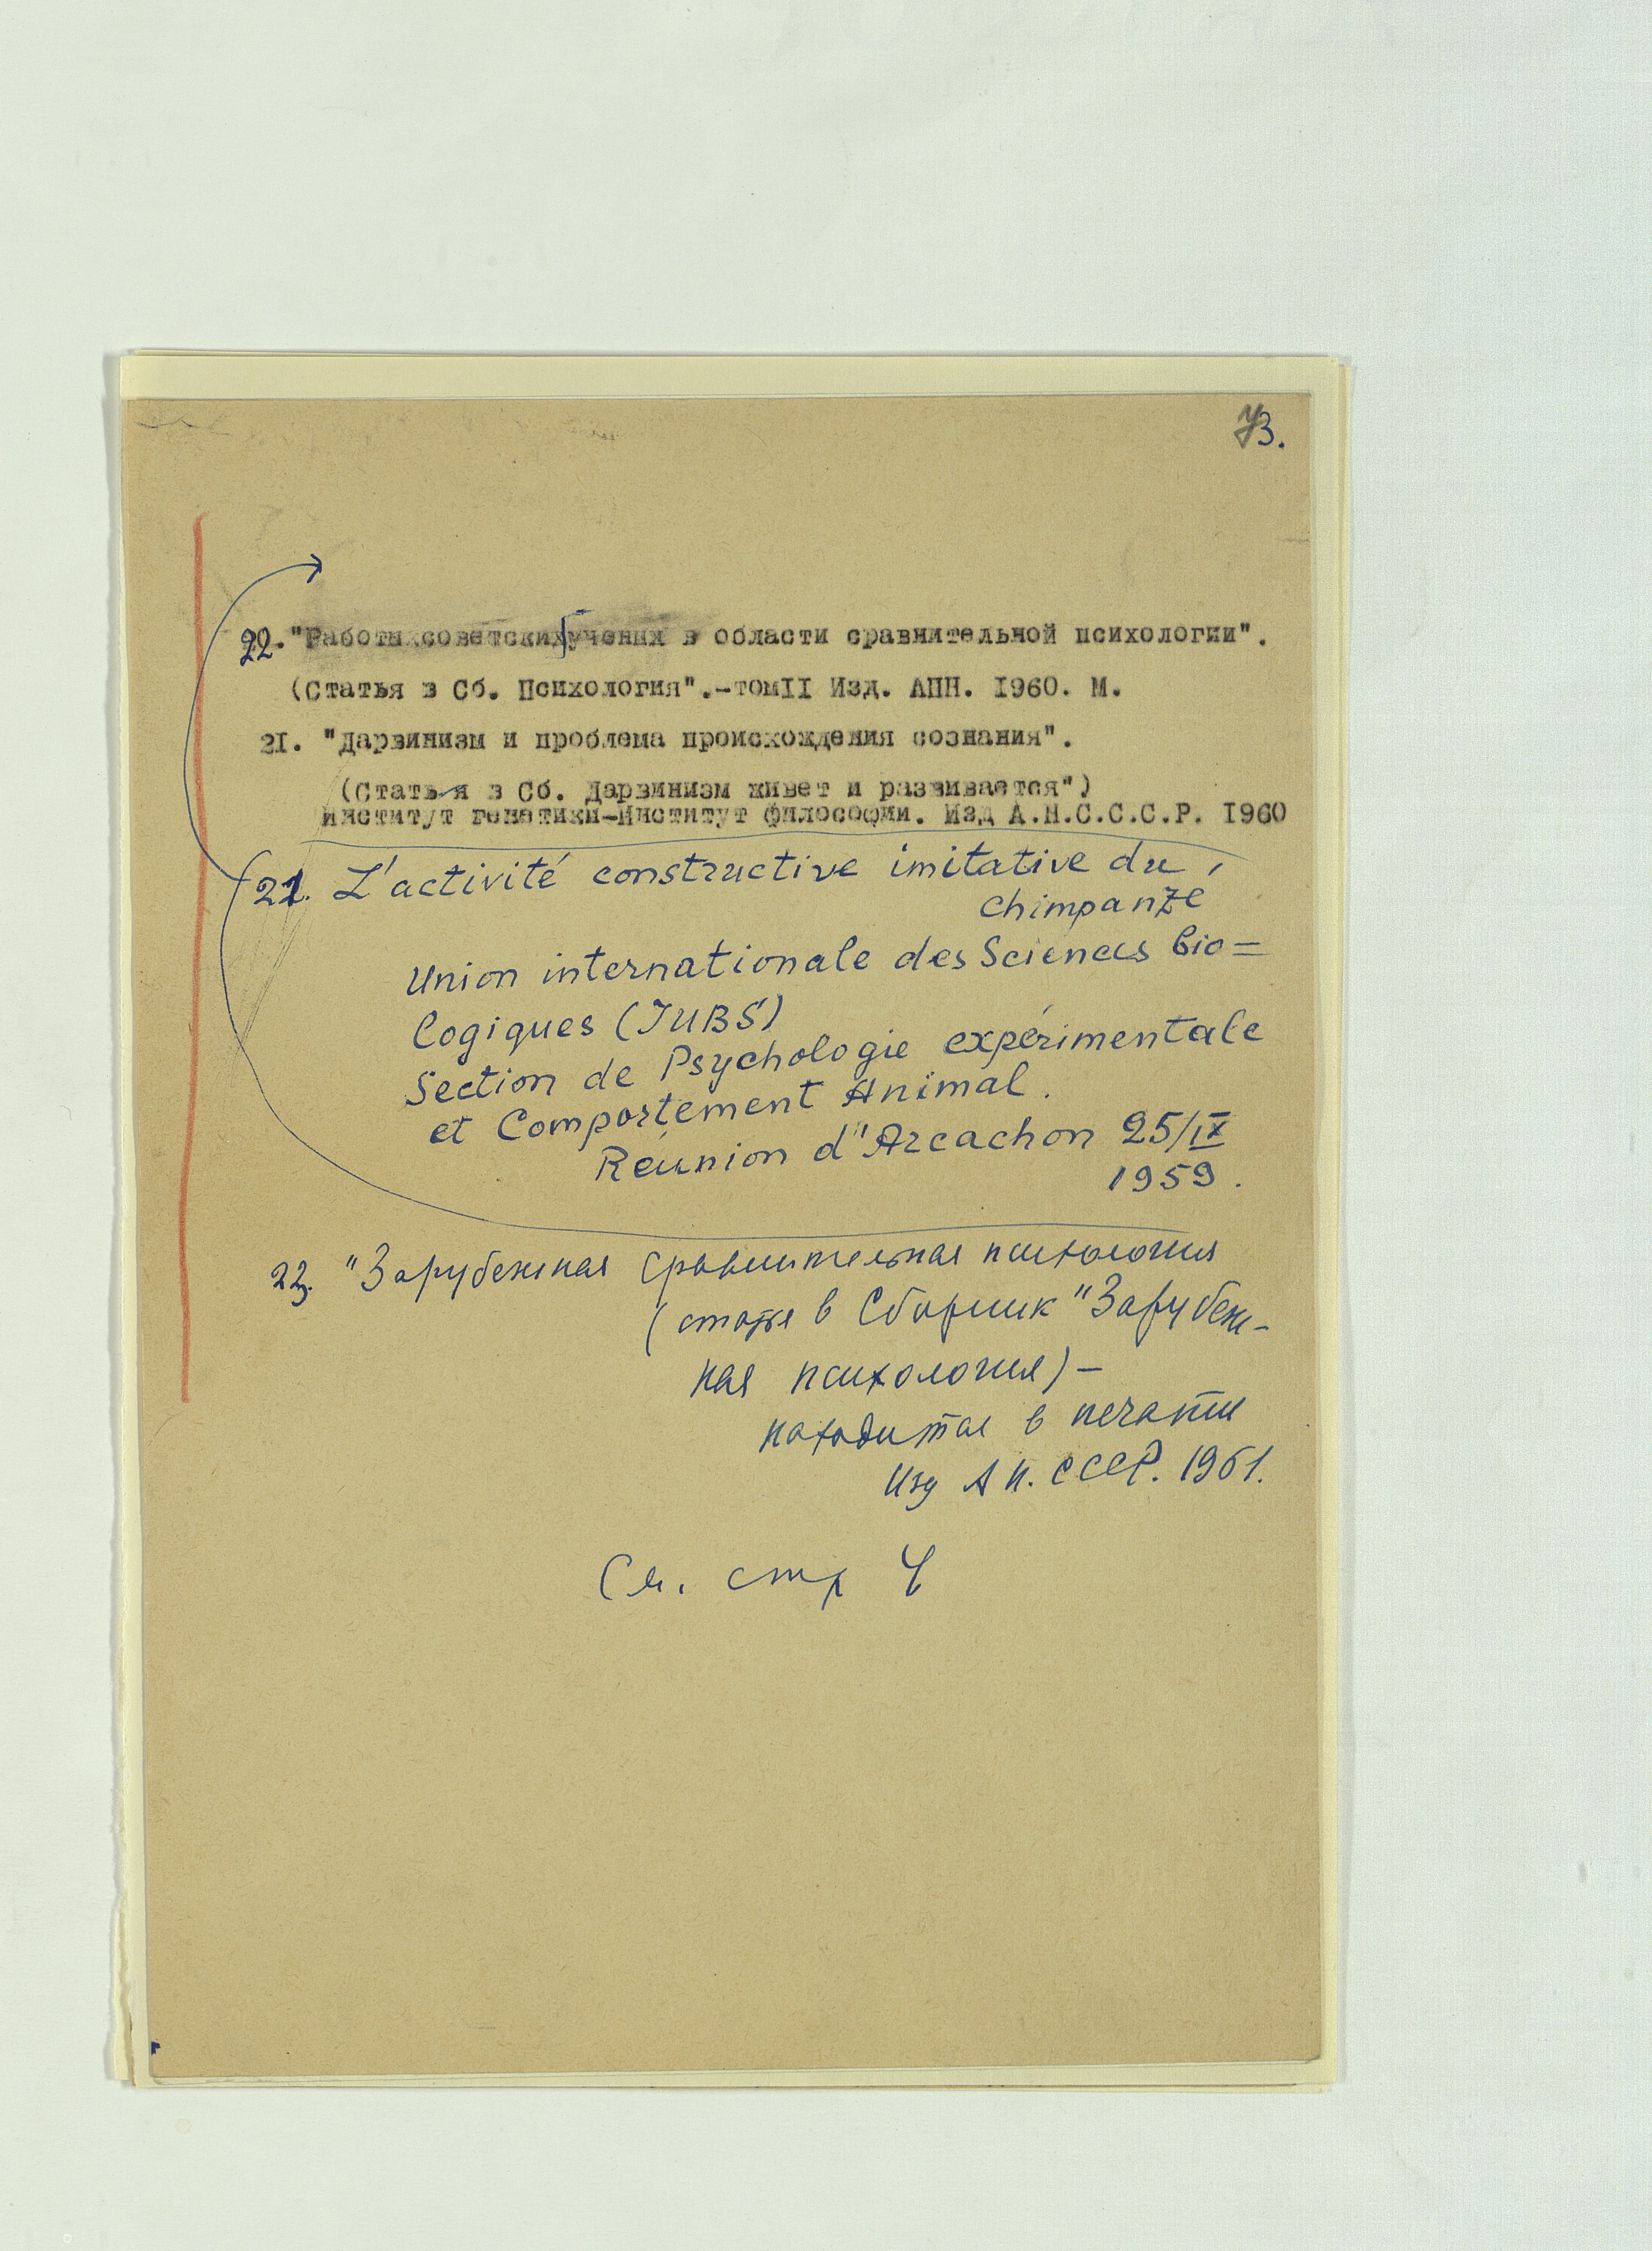 73.
22. "Работы советских учених в области сравнительной психологии".
(Статья в Сб. Психология".-томII Изд. АПН. I960. М.
2I. "Дарвинизм и проблема происхождения сознания".
(Статья в Сб. Дарвинизм живет и развивается")
Институт генетики-Институт философии. Изд А.Н.С.С.С.Р. I960
21. L'activité constructive imitative du
chimpanzé
Union internationale des Sciences bio=
logiques (IUBS)
Section de Psychologie expérimentale
et Comportement Animal.
Réunion d"Arcachon 25/IX
1959.
23. "Зарубежная сравнительная психология
( статья в Сборник "Зарубеж-
ная психология) –
находится в печати
Изд АН. СССР. 1961.
См. стр 4